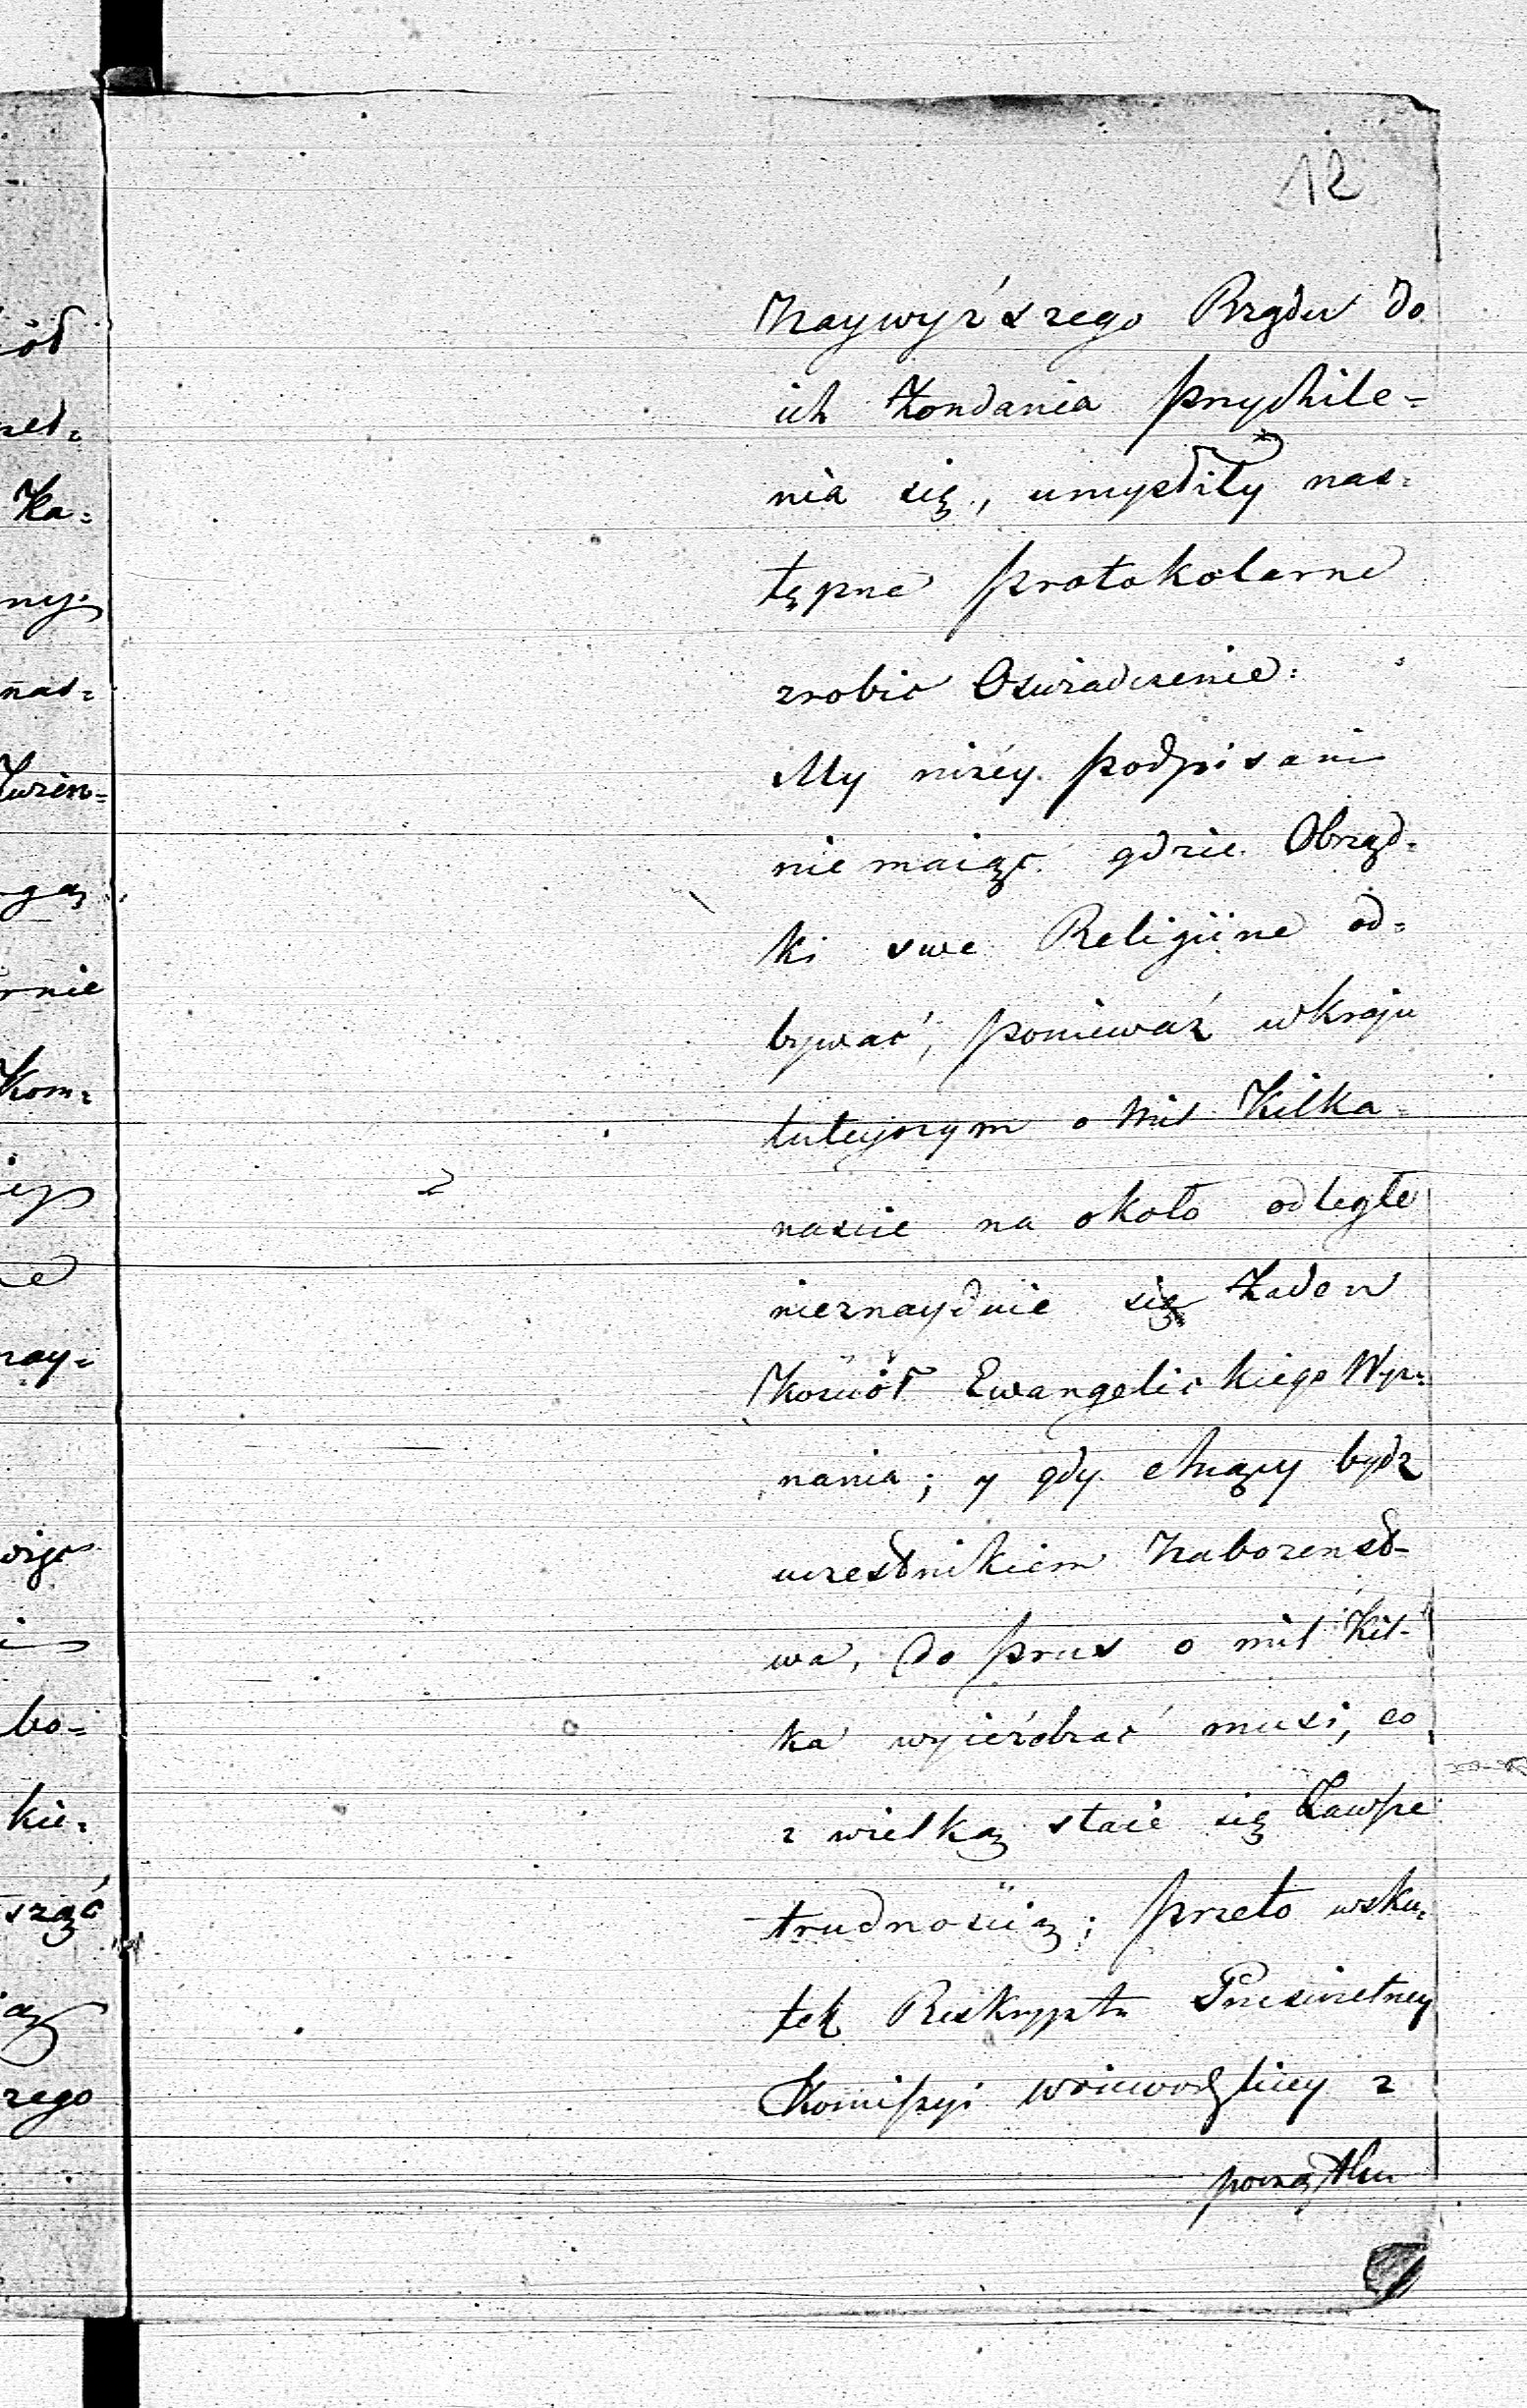 12
Naywyższego Rządu do
ich Żondania przychile=
nia się, umysliły nas=
tępne protokolarne
zrobic Oswiadczenie:
My niżéy podpisani
nie maiąc gdzie Obrząd=
ki swe Religiine od=
bywać, poniewaź w kraju
tuteyszym o Mil Kilka=
nascie na około odległe
nieznayduie się Żaden
Kościół Ewangelickiego Wyz=
nania; y gdy chcący bydz
uczestnikiem Nabozenst=
wa, do prus o mil Kil=
ka wyieźdzać musi, co
z wielką staie się Zawsze
trudnością; przeto wsku=
tek Reskryptu Prześwietney
Komissyi Woiewodzkiey z
początku
ód
Ka=
ny
nas=
gą
rnie
Kom=
nay=
więc
bo=
kie=
sząć
rego